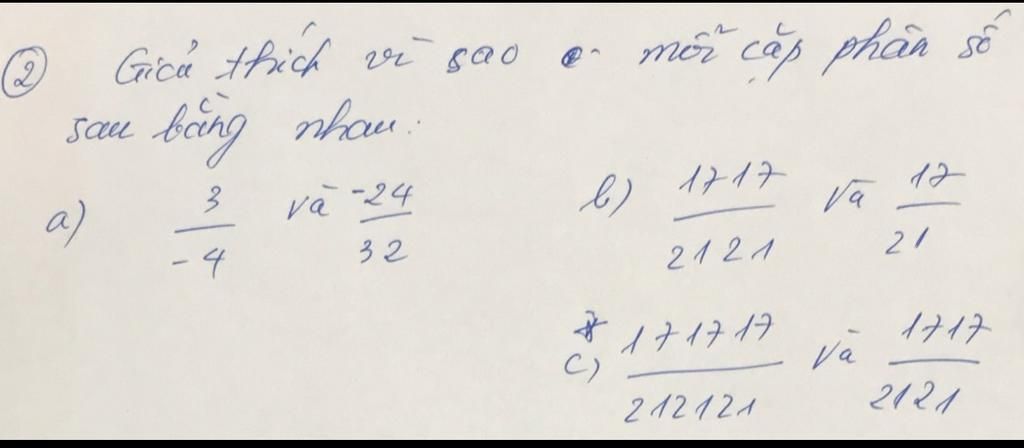 ② Giải thích vì sao mỗi cặp phân số
sau bằng nhau:
a) 3/-4 và -24/32
b) 1717/2121 và 17/21
* c) 171717/212121 và 1717/2121